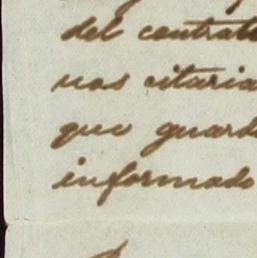 del contrato
nos citaria
que guard
informado